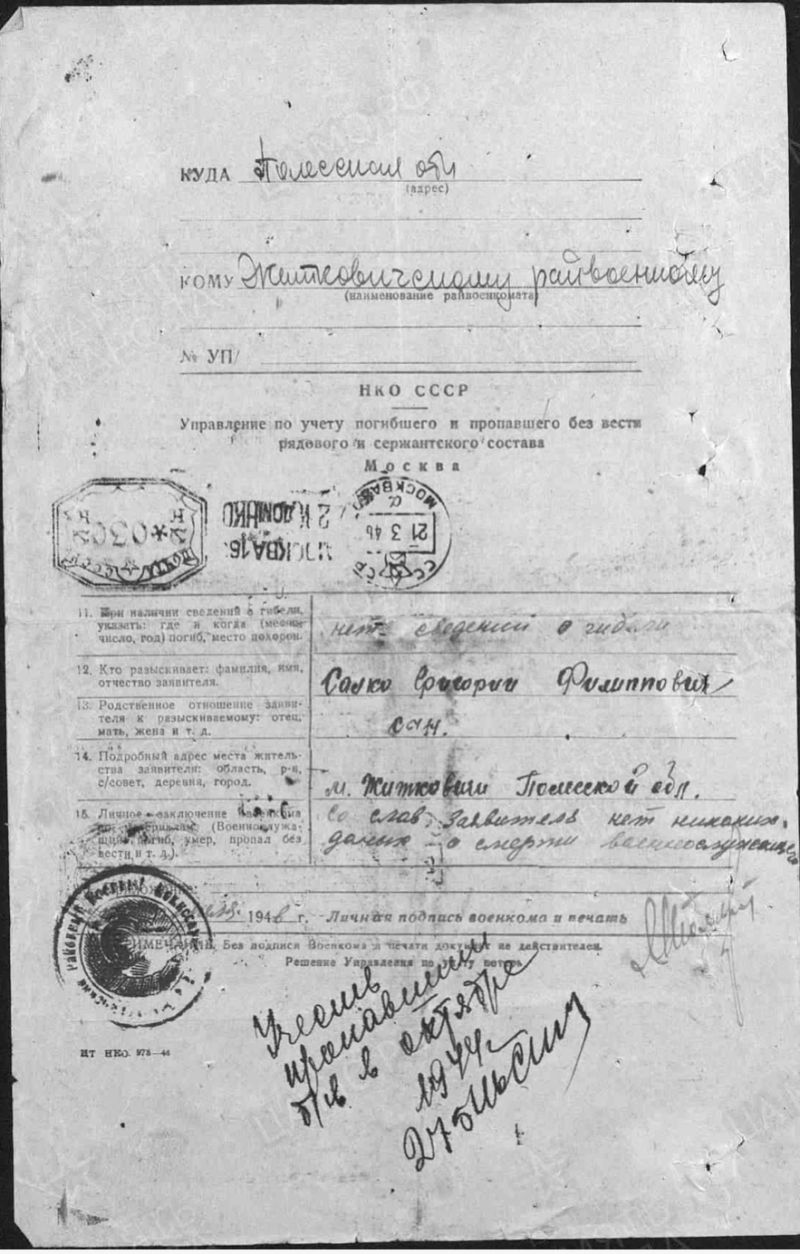 КУДА Полесская обл
(адрес)
КОМУ Житковичскому райвоенкому
(наименование райвоенкомата)
№ УП/
НКО СССР
Управление по учету погибшего и пропавшего без вести
рядового и сержантского состава
Москва
ПОЧТА СССР
030
МОСКВА 16
2 К ДОМ НКО
МОСКВА
21 3 46
СССР
11. При наличии сведений о гибели,
указать: где и когда (месяц
число, год) погиб, место похорон.
нет сведений о гибели
12. Кто разыскивает: фамилия, имя,
отчество заявителя.
Салко Григории Филиппович
13. Родственное отношение заяви-
теля к разыскиваемому: отец,
мать, жена и т. д.
сын.
14. Подробный адрес места житель-
ства заявителя: область, р-н,
с/совет, деревня, город.
м. Житковичи Полесской обл.
15. Личное заключение военкома
(Военнослужа-
щий погиб, умер, пропал без
вести и т. д.).
Со слав. Заявитель нет никаких
даных о смерти военнослужащего
1946 г. Личная подпись военкома и печать
ПРИМЕЧАНИЕ. Без подписи Военкома и печати документ не действителен.
Решение Управления по учету потерь
Районный Военный Комиссариат
Учесть
пропавшим
б/в в октябре
1944г.
ИТ НКО. 978—46